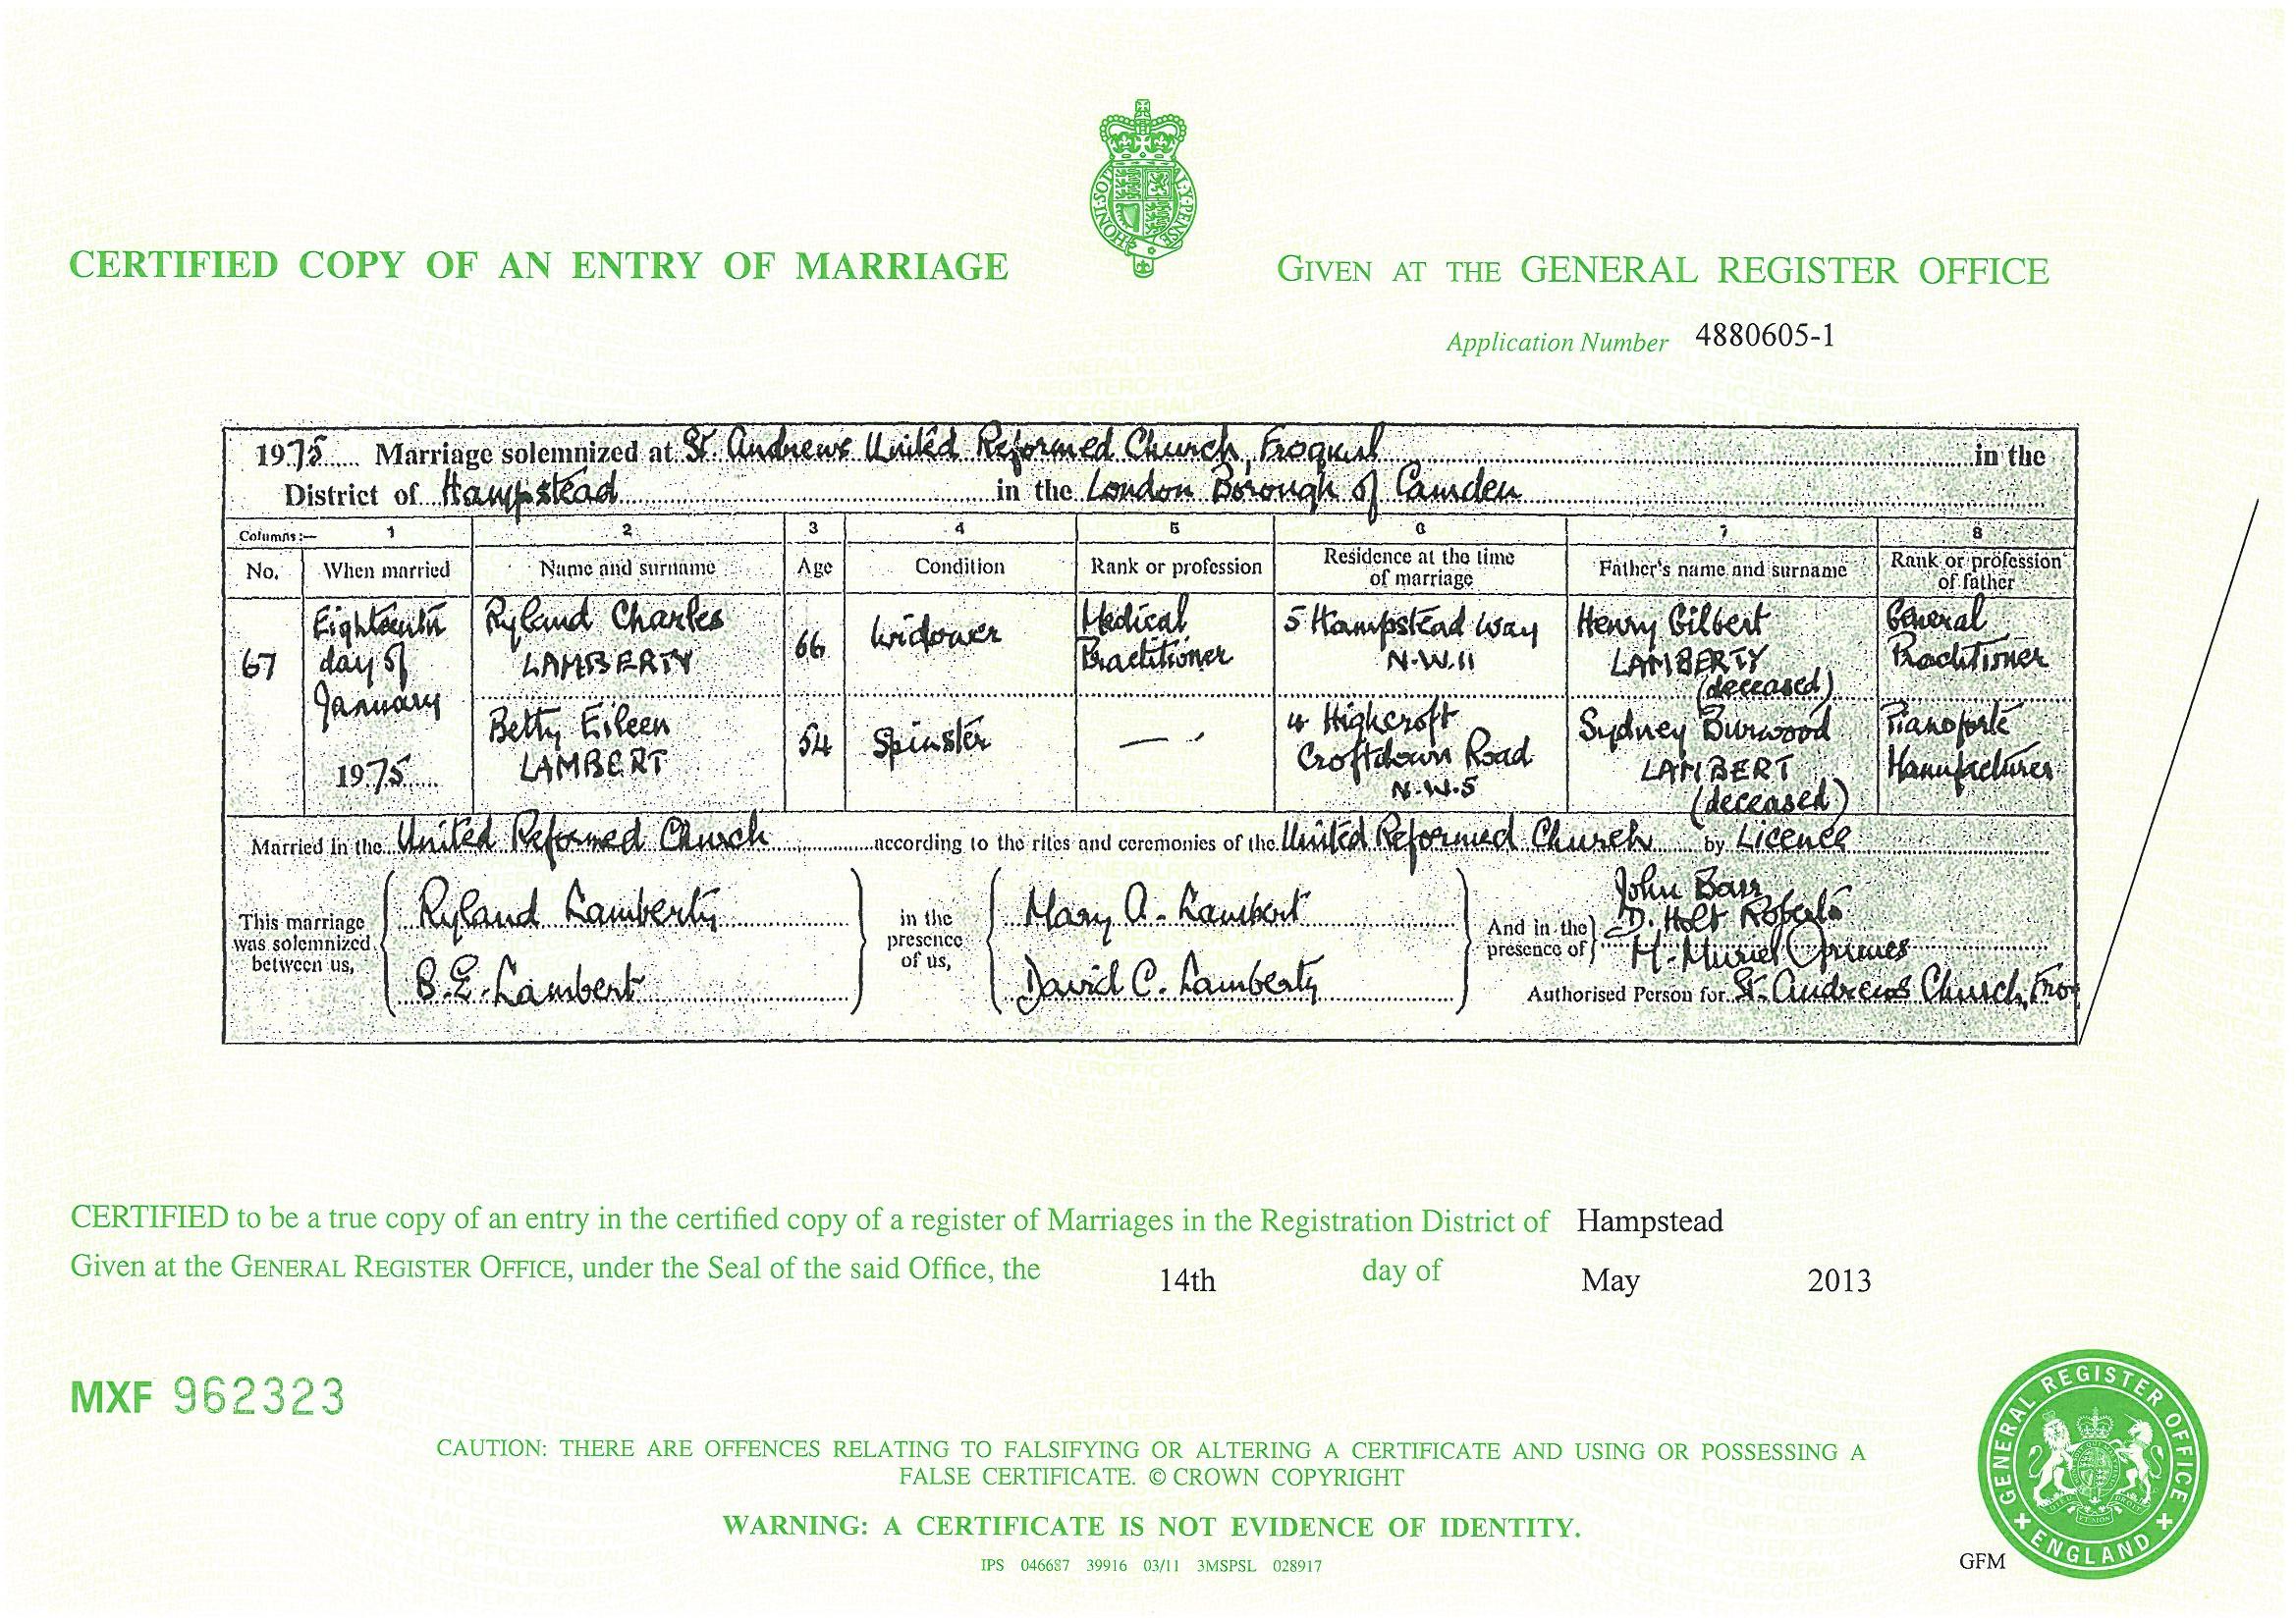 HONI·SOI
AL·Y·PENSE
CERTIFIED COPY OF AN ENTRY OF MARRIAGE
GIVEN AT THE GENERAL REGISTER OFFICE
Application Number 4880605-1
1975 Marriage solemnized at St. Andrews United Reformed Church, in the
District of Hampstead in the London Borough of Camden
Columns:— 1 2 3 4 5 6 7 8
No. When married Name and surname Age Condition Rank or profession Residence at the time of marriage Father's name and surname Rank or profession of father
67
Eighteenth
day of
January
1975
Ryland Charles
LAMBERTY
66
Widower
Medical
Practitioner
5 Hampstead Way
N.W.11
Henry Gilbert
LAMBERTY
(deceased)
General
Practitioner
Betty Eileen
LAMBERT
54
Spinster
—
4 Highcroft
Croftdown Road
N.W.5
Sydney Burwood
LAMBERT
(deceased)
Pianoforte
Manufacturer
Married in the United Reformed Church according to the rites and ceremonies of the United Reformed Church by Licence
This marriage
was solemnized
between us,
Ryland Lamberty
B.E. Lambert
in the
presence
of us,
Mary A. Lambert
David C. Lamberty
And in the
presence of
John Barr
D. Holt Roberts
M. Muriel
Authorised Person for St. Andrews Church, Fro
CERTIFIED to be a true copy of an entry in the certified copy of a register of Marriages in the Registration District of Hampstead
Given at the GENERAL REGISTER OFFICE, under the Seal of the said Office, the 14th day of May 2013
MXF 962323
CAUTION: THERE ARE OFFENCES RELATING TO FALSIFYING OR ALTERING A CERTIFICATE AND USING OR POSSESSING A
FALSE CERTIFICATE. © CROWN COPYRIGHT
WARNING: A CERTIFICATE IS NOT EVIDENCE OF IDENTITY.
IPS 046687 39916 03/11 3MSPSL 028917
GFM
GENERAL REGISTER OFFICE
ENGLAND